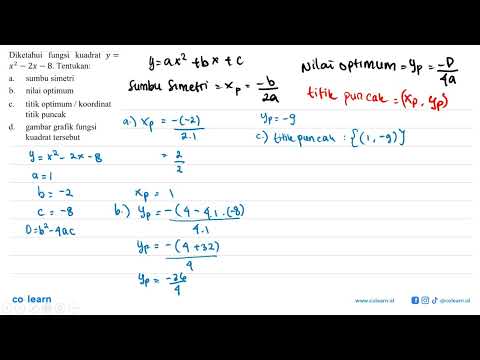 Diketahui fungsi kuadrat y =
x² − 2x − 8. Tentukan:
a. sumbu simetri
b. nilai optimum
c. titik optimum / koordinat
titik puncak
d. gambar grafik fungsi
kuadrat tersebut
y = x² - 2x - 8
a = 1
b = -2
c = -8
D = b² - 4ac
y = ax² + bx + c
Sumbu Simetri = xp = -b/2a
Nilai optimum = yp = -D/4a
titik puncak = (xp, yp)
a.) xp = -(-2)/2.1
= 2/2
xp = 1
b.) yp = -(4 - 4.1.(-8)/4.1
yp = -(4 + 32)/4
yp = -36/4
yp = -9
c.) titik puncak : {(1, -9)}
co learn
www.colearn.id
@colearn.id